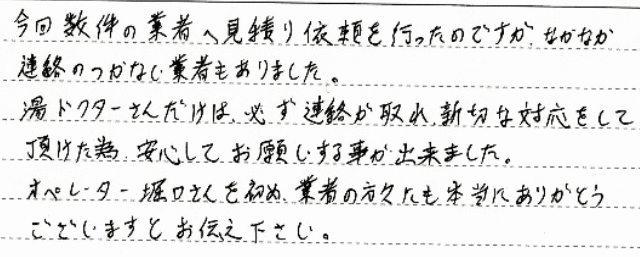 今回数件の業者へ見積り依頼を行ったのですが、なかなか
連絡のつかない業者もありました。
湯ドクターさんだけは、必ず連絡が取れ、親切な対応をして
頂けた為、安心してお願いする事が出来ました。
オペレーター堀口さんを初め、業者の方々にも本当にありがとう
ございますとお伝え下さい。